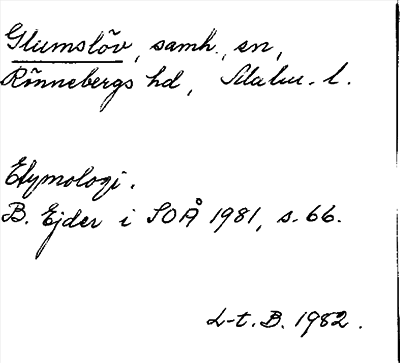 Glumslöv, samh., sn,
Rönnebergs hd, Malm. l.
Etymologi.
B. Ejder i SOÅ 1981, s. 66.
L-t. B. 1982.